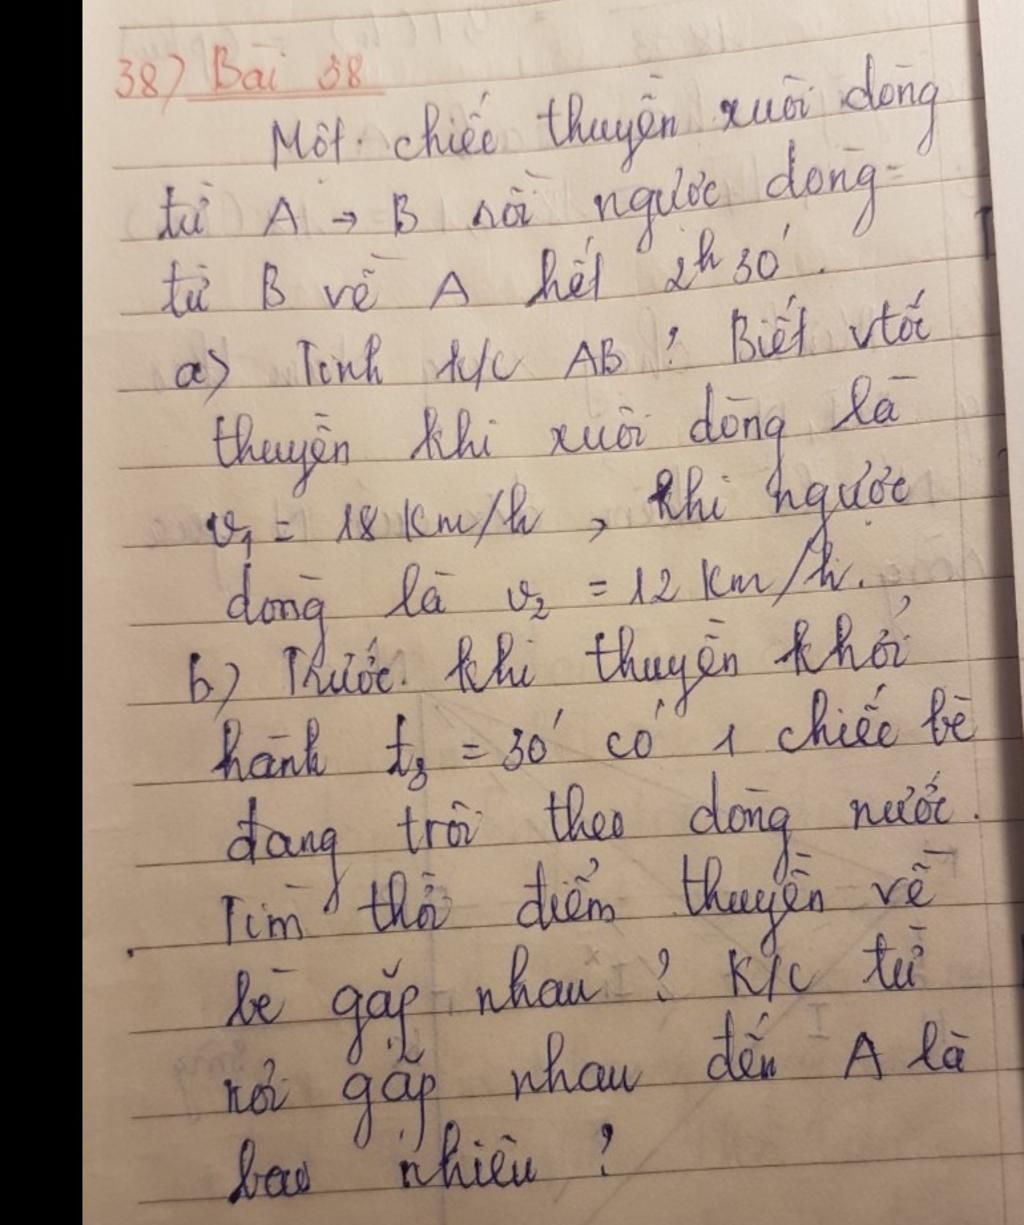 38) Bài 38
Một chiếc thuyền xuôi dòng
từ A → B rồi ngược dòng
từ B về A hết 2h30'.
a) Tính k/c AB ? Biết vtốc
thuyền khi xuôi dòng là
v1 = 18 Km/h, khi ngược
dòng là v2 = 12 Km/h.
b) Trước khi thuyền khởi
hành t3 = 30' có 1 chiếc bè
đang trôi theo dòng nước.
Tìm thời điểm thuyền về
bè gặp nhau ? K/c từ
nơi gặp nhau đến A là
bao nhiêu ?